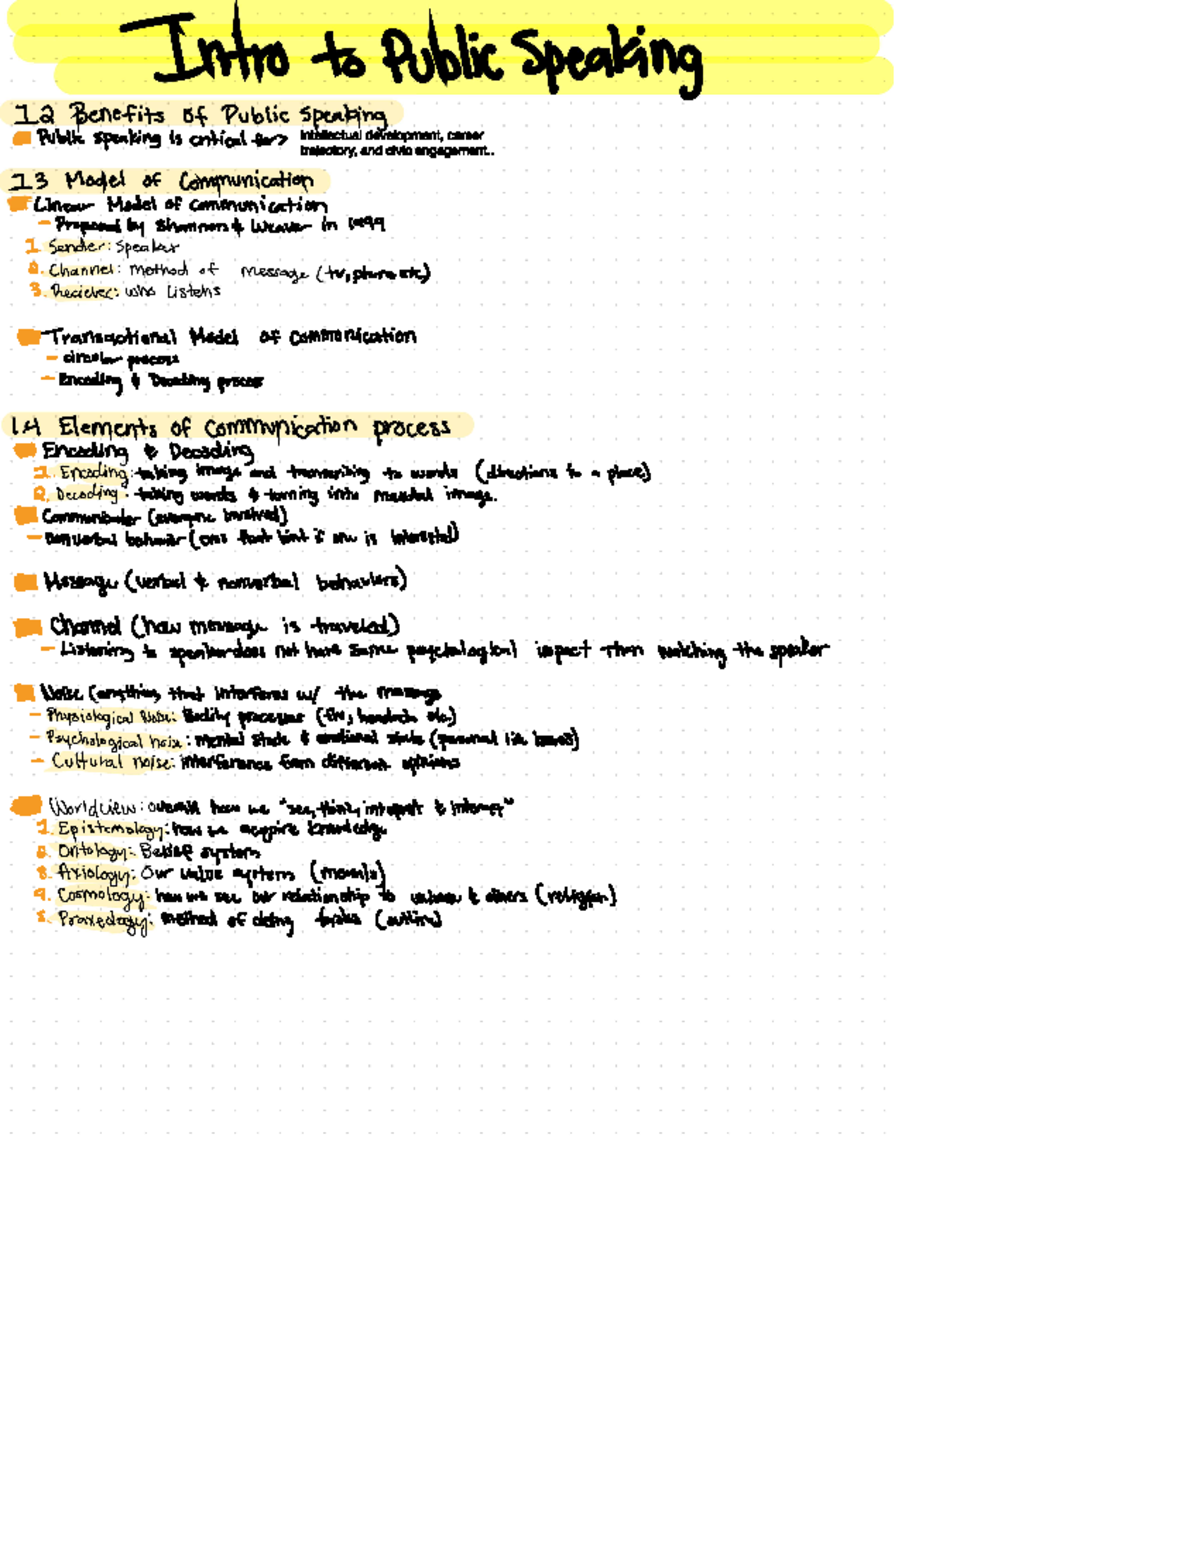 Intro to Public Speaking
1.2 Benefits of Public Speaking
Public speaking is critical for>
Intellectual development, career
trajectory, and civic engagement..
1.3 Model of Communication
Linear Model of communication
- Proposed by Shannon & Weaver in
1. Sender: Speaker
2. Channel: method of message (tv, phone etc)
3. Reciever: who listens
Transactional Model of communication
- circular process
- Encoding & Decoding process
1.4 Elements of communication process
Encoding & Decoding
1. Encoding: taking image and transcribing to words (directions to a place)
2. Decoding: taking words & turning into mental image.
Communicator (everyone involved)
- nonverbal behavior (ones that hint if one is interested)
Message (verbal & nonverbal behaviors)
Channel (how message is traveled)
- Listening to speaker does not have same psychological impact than watching the speaker
Noise (anything that interferes w/ the message
- Physiological Noise: Bodily processes (flu, headache etc.)
- Psychological noise: mental state & emotional state (personal life)
- Cultural noise: interference from different opinions
Worldview: overall how we "see, think, interpret & interact"
1. Epistemology: how we acquire knowledge
2. Ontology: Belief system
3. Axiology: Our value systems (morals)
4. Cosmology: how we see our relationship to universe & others (religion)
5. Praxeology: method of doing tasks (outline)